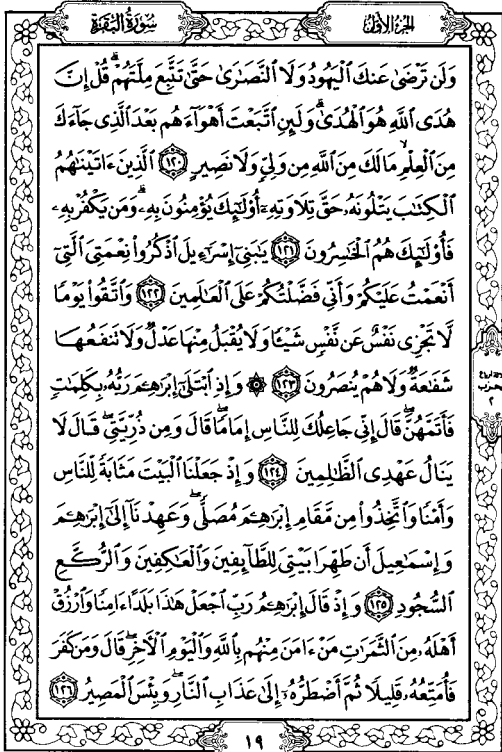 سُورَةُ البَقَرَةِ
الجُزْءُ الأَوَّلُ
وَلَن تَرْضَىٰ عَنكَ ٱلْيَهُودُ وَلَا ٱلنَّصَٰرَىٰ حَتَّىٰ تَتَّبِعَ مِلَّتَهُمْ ۗ قُلْ إِنَّ
هُدَى ٱللَّهِ هُوَ ٱلْهُدَىٰ ۗ وَلَئِنِ ٱتَّبَعْتَ أَهْوَآءَهُم بَعْدَ ٱلَّذِى جَآءَكَ
مِنَ ٱلْعِلْمِ ۙ مَا لَكَ مِنَ ٱللَّهِ مِن وَلِىٍّ وَلَا نَصِيرٍ ١٢٠ ٱلَّذِينَ ءَاتَيْنَٰهُمُ
ٱلْكِتَٰبَ يَتْلُونَهُۥ حَقَّ تِلَاوَتِهِۦٓ أُو۟لَٰٓئِكَ يُؤْمِنُونَ بِهِۦ ۗ وَمَن يَكْفُرْ بِهِۦ
فَأُو۟لَٰٓئِكَ هُمُ ٱلْخَٰسِرُونَ ١٢١ يَٰبَنِىٓ إِسْرَٰٓءِيلَ ٱذْكُرُوا۟ نِعْمَتِىَ ٱلَّتِىٓ
أَنْعَمْتُ عَلَيْكُمْ وَأَنِّى فَضَّلْتُكُمْ عَلَى ٱلْعَٰلَمِينَ ١٢٢ وَٱتَّقُوا۟ يَوْمًا
لَّا تَجْزِى نَفْسٌ عَن نَّفْسٍ شَيْـًٔا وَلَا يُقْبَلُ مِنْهَا عَدْلٌ وَلَا تَنفَعُهَا
شَفَٰعَةٌ وَلَا هُمْ يُنصَرُونَ ١٢٣ ۞ وَإِذِ ٱبْتَلَىٰٓ إِبْرَٰهِـۧمَ رَبُّهُۥ بِكَلِمَٰتٍ
فَأَتَمَّهُنَّ ۖ قَالَ إِنِّى جَاعِلُكَ لِلنَّاسِ إِمَامًا ۖ قَالَ وَمِن ذُرِّيَّتِى ۖ قَالَ لَا
يَنَالُ عَهْدِى ٱلظَّٰلِمِينَ ١٢٤ وَإِذْ جَعَلْنَا ٱلْبَيْتَ مَثَابَةً لِّلنَّاسِ
وَأَمْنًا وَٱتَّخِذُوا۟ مِن مَّقَامِ إِبْرَٰهِـۧمَ مُصَلًّى ۖ وَعَهِدْنَآ إِلَىٰٓ إِبْرَٰهِـۧمَ
وَإِسْمَٰعِيلَ أَن طَهِّرَا بَيْتِىَ لِلطَّآئِفِينَ وَٱلْعَٰكِفِينَ وَٱلرُّكَّعِ
ٱلسُّجُودِ ١٢٥ وَإِذْ قَالَ إِبْرَٰهِـۧمُ رَبِّ ٱجْعَلْ هَٰذَا بَلَدًا ءَامِنًا وَٱرْزُقْ
أَهْلَهُۥ مِنَ ٱلثَّمَرَٰتِ مَنْ ءَامَنَ مِنْهُم بِٱللَّهِ وَٱلْيَوْمِ ٱلْءَاخِرِ ۖ قَالَ وَمَن كَفَرَ
فَأُمَتِّعُهُۥ قَلِيلًا ثُمَّ أَضْطَرُّهُۥٓ إِلَىٰ عَذَابِ ٱلنَّارِ ۖ وَبِئْسَ ٱلْمَصِيرُ ١٢٦
١٩